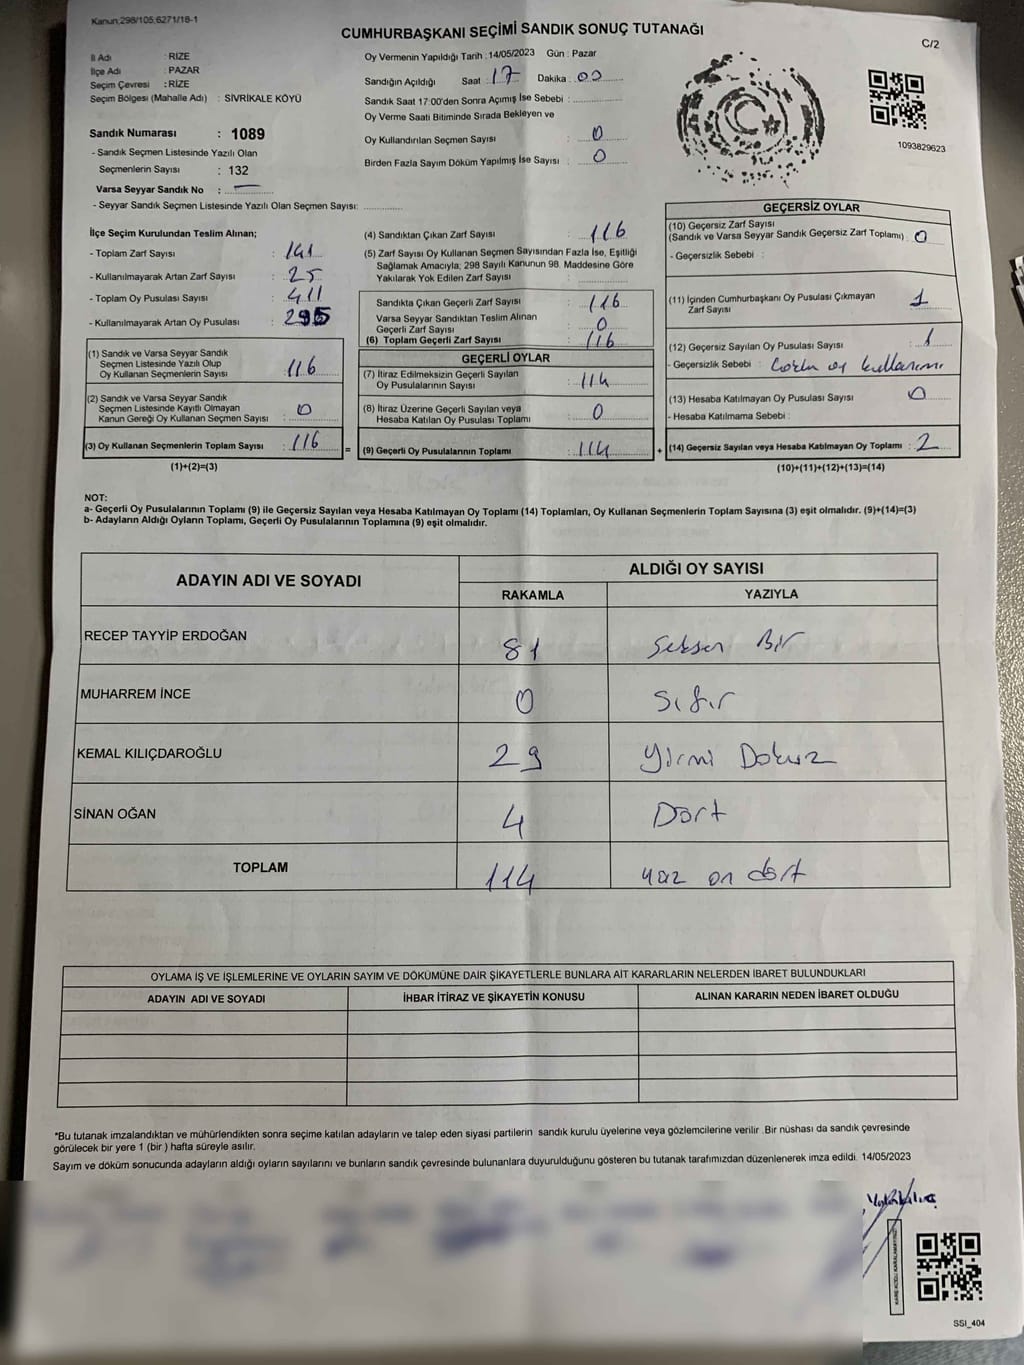 Kanun;298/105,6271/18-1
CUMHURBAŞKANI SEÇİMİ SANDIK SONUÇ TUTANAĞI
C/2
İl Adı : RİZE
İlçe Adı : PAZAR
Seçim Çevresi : RİZE
Seçim Bölgesi (Mahalle Adı) : SİVRİKALE KÖYÜ
Oy Vermenin Yapıldığı Tarih : 14/05/2023 Gün : Pazar
Sandığın Açıldığı Saat : 17 Dakika : 00
Sandık Saat 17:00'den Sonra Açımış İse Sebebi :
Oy Verme Saati Bitiminde Sırada Bekleyen ve
Oy Kullandırılan Seçmen Sayısı : 0
Birden Fazla Sayım Döküm Yapılmış İse Sayısı : 0
1093829623
Sandık Numarası : 1089
- Sandık Seçmen Listesinde Yazılı Olan
Seçmenlerin Sayısı : 132
Varsa Seyyar Sandık No : —
- Seyyar Sandık Seçmen Listesinde Yazılı Olan Seçmen Sayısı:
İlçe Seçim Kurulundan Teslim Alınan;
- Toplam Zarf Sayısı : 141
- Kullanılmayarak Artan Zarf Sayısı : 25
- Toplam Oy Pusulası Sayısı : 411
- Kullanılmayarak Artan Oy Pusulası : 295
(1) Sandık ve Varsa Seyyar Sandık
Seçmen Listesinde Yazılı Olup
Oy Kullanan Seçmenlerin Sayısı : 116
(2) Sandık ve Varsa Seyyar Sandık
Seçmen Listesinde Kayıtlı Olmayan
Kanun Gereği Oy Kullanan Seçmen Sayısı : 0
(3) Oy Kullanan Seçmenlerin Toplam Sayısı : 116
(1)+(2)=(3)
=
(4) Sandıktan Çıkan Zarf Sayısı : 116
(5) Zarf Sayısı Oy Kullanan Seçmen Sayısından Fazla İse, Eşitliği
Sağlamak Amacıyla; 298 Sayılı Kanunun 98. Maddesine Göre
Yakılarak Yok Edilen Zarf Sayısı :
Sandıkta Çıkan Geçerli Zarf Sayısı : 116
Varsa Seyyar Sandıktan Teslim Alınan
Geçerli Zarf Sayısı : 0
(6) Toplam Geçerli Zarf Sayısı : 116
GEÇERLİ OYLAR
(7) İtiraz Edilmeksizin Geçerli Sayılan
Oy Pusulalarının Sayısı : 114
(8) İtiraz Üzerine Geçerli Sayılan veya
Hesaba Katılan Oy Pusulası Toplamı : 0
(9) Geçerli Oy Pusulalarının Toplamı : 114
+
GEÇERSİZ OYLAR
(10) Geçersiz Zarf Sayısı
(Sandık ve Varsa Seyyar Sandık Geçersiz Zarf Toplamı) : 0
- Geçersizlik Sebebi :
(11) İçinden Cumhurbaşkanı Oy Pusulası Çıkmayan
Zarf Sayısı : 1
(12) Geçersiz Sayılan Oy Pusulası Sayısı : 1
- Geçersizlik Sebebi : oy kullanımı
(13) Hesaba Katılmayan Oy Pusulası Sayısı : 0
- Hesaba Katılmama Sebebi :
(14) Geçersiz Sayılan veya Hesaba Katılmayan Oy Toplamı : 2
(10)+(11)+(12)+(13)=(14)
NOT:
a- Geçerli Oy Pusulalarının Toplamı (9) ile Geçersiz Sayılan veya Hesaba Katılmayan Oy Toplamı (14) Toplamları, Oy Kullanan Seçmenlerin Toplam Sayısına (3) eşit olmalıdır. (9)+(14)=(3)
b- Adayların Aldığı Oyların Toplamı, Geçerli Oy Pusulalarının Toplamına (9) eşit olmalıdır.
ADAYIN ADI VE SOYADI
ALDIĞI OY SAYISI
RAKAMLA YAZIYLA
RECEP TAYYİP ERDOĞAN 81 Seksen Bir
MUHARREM İNCE 0 Sıfır
KEMAL KILIÇDAROĞLU 29 Yirmi Dokuz
SİNAN OĞAN 4 Dört
TOPLAM 114 yüz on dört
OYLAMA İŞ VE İŞLEMLERİNE VE OYLARIN SAYIM VE DÖKÜMÜNE DAİR ŞİKAYETLERLE BUNLARA AİT KARARLARIN NELERDEN İBARET BULUNDUKLARI
ADAYIN ADI VE SOYADI İHBAR İTİRAZ VE ŞİKAYETİN KONUSU ALINAN KARARIN NEDEN İBARET OLDUĞU
*Bu tutanak imzalandıktan ve mühürlendikten sonra seçime katılan adayların ve talep eden siyasi partilerin sandık kurulu üyelerine veya gözlemcilerine verilir .Bir nüshası da sandık çevresinde
görülecek bir yere 1 (bir ) hafta süreyle asılır.
Sayım ve döküm sonucunda adayların aldığı oyların sayılarını ve bunların sandık çevresinde bulunanlara duyurulduğunu gösteren bu tutanak tarafımızdan düzenlenerek imza edildi. 14/05/2023
KARE KODU KARALAMAYINIZ
SSI_404